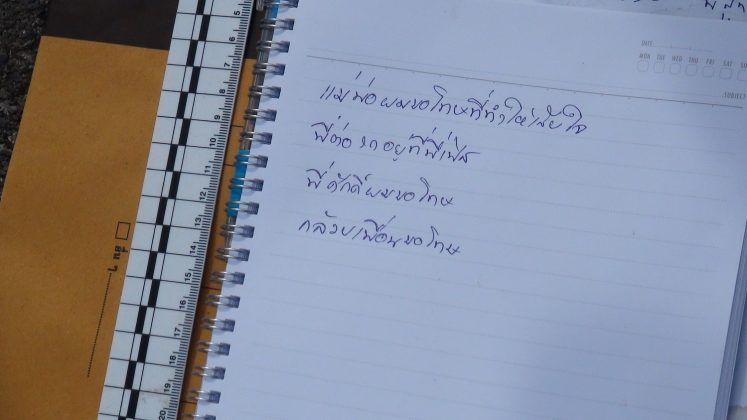 DATE:
MON TUE WED THU FRI SAT
SUBJECT
แม่พ่อผมขอโทษที่ทำให้เสียใจ
พี่ต่อ รถอยู่ที่พี่เปิ้ล
พี่ศักดิ์ผมขอโทษ
กล้วยเพื่อนขอโทษ
5 6 7 8 9 10 11 12 13 14 15 16 17 18 19 20